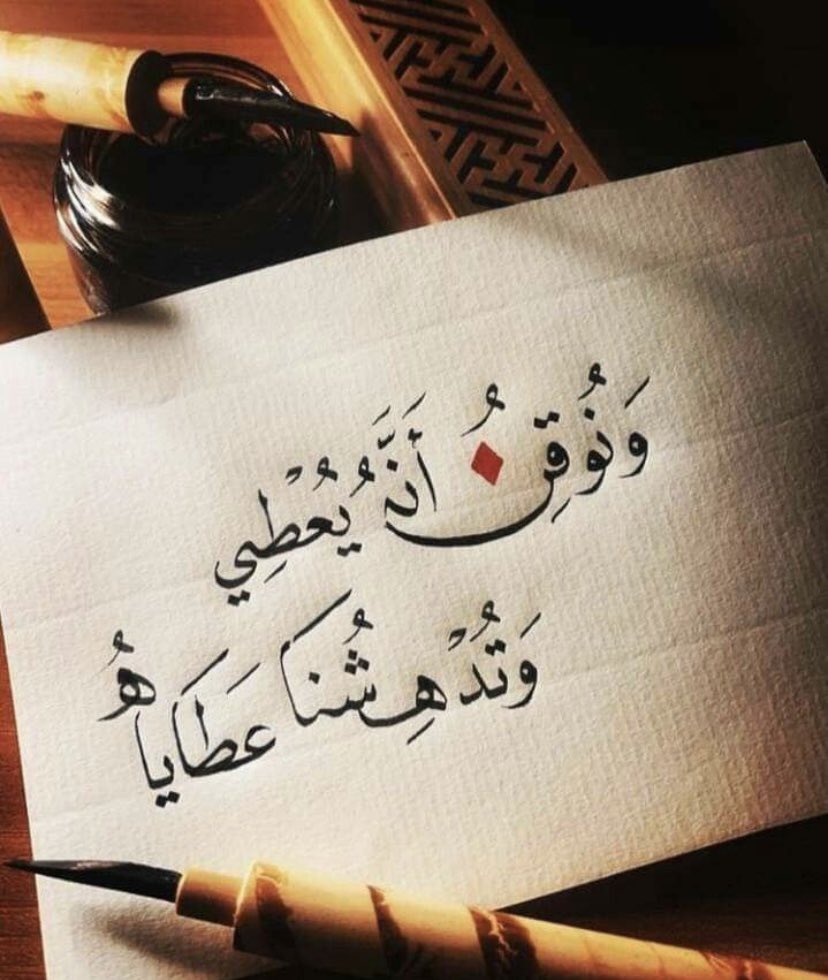 وَنُوقِنُ أَنَّهُ يُعْطِي
وَتُدْهِشُنَا عَطَايَاهُ